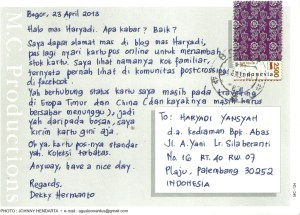 Bogor, 23 April 2013
Halo mas Haryadi. Apa kabar? Baik?
Saya dapat alamat mas di blog mas Haryadi,
pas lagi nyari kartu pos online untuk menambah
stok kartu. Saya lihat namanya kok familiar,
ternyata pernah lihat di komunitas postcrossing
di facebook.
Yah berhubung status kartu saya masih pada traveling
di Eropa Timur dan China (dan kayaknya masih harus
bersabar menunggu), jadi
yah daripada bosan, saya
kirim kartu gini aja.
Oh ya, kartu pos-nya standar
yah. Koleksi terbatas.
Anyway, have a nice day.
Regards,
Dekky Hermanto
To: HARYADI YANSYAH
d.a. kediaman Bpk. Abas
Jl. A. Yani Lr. Silaberanti
No. 16 RT. 40 RW. 07
Plaju, Palembang 30252
INDONESIA
MCA Production
PHOTO : JOHNNY HENDARTA